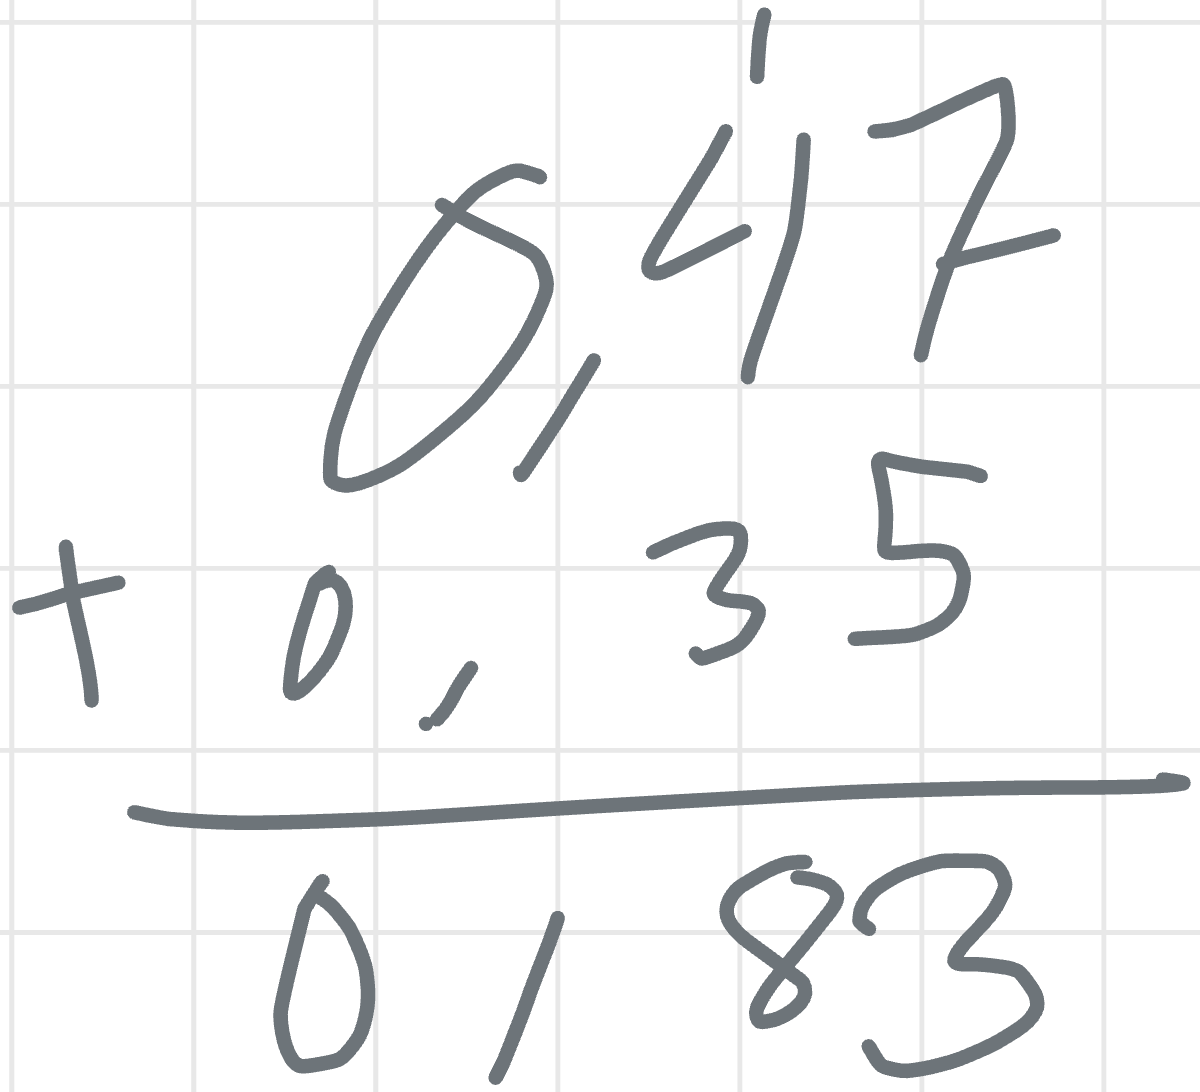 1
0,47
+ 0,35
0,83